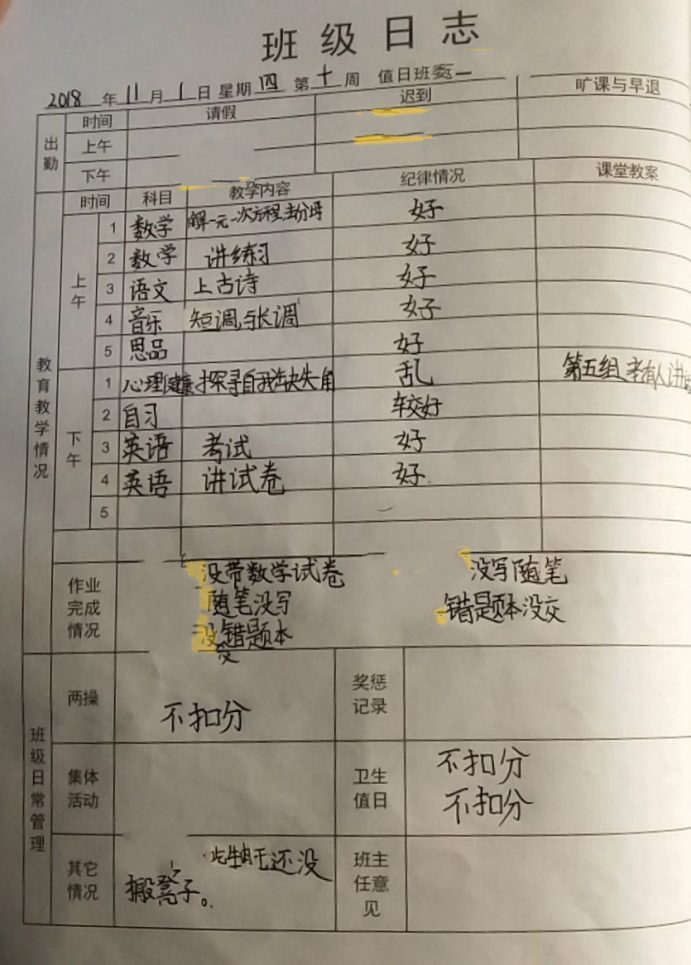 班级日志
2018 年 11 月 1 日 星期 四 第 十 周 值日班委
出勤 时间 请假 迟到 旷课与早退
上午
下午
教育教学情况 时间 科目 教学内容 纪律情况 课堂教案
上午 1 数学 解一元一次方程去分母 好
2 数学 讲练习 好
3 语文 上古诗 好
4 音乐 短调与长调 好
5 思品 好
下午 1 心理健康 探寻自我缺失角 乱 第五组 有人讲
2 自习 较好
3 英语 考试 好
4 英语 讲试卷 好
5
作业完成情况 没带数学试卷 没写随笔
随笔没写 错题本没交
没交错题本
班级日常管理 两操 不扣分 奖惩记录
集体活动 卫生值日 不扣分
不扣分
其它情况 还没 班主任意见
搬凳子。